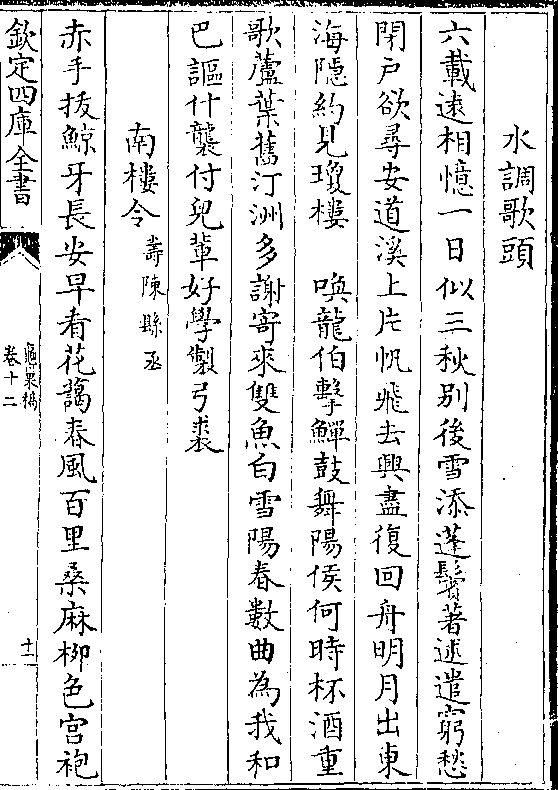 水調歌頭
六載遠相憶一日似三秋别後雪添蓬鬢著述遣窮愁
閉戶欲尋安道溪上片帆飛去興盡復回舟明月出東
海隱約見瓊樓　喚龍伯擊鱓鼓舞陽侯何時杯酒重
歌蘆葉舊汀洲多謝寄來雙魚白雪陽春數曲為我和
巴謳什襲付兒輩好學製弓裘
南樓令壽陳縣丞
赤手拔鯨牙長安早看花藹春風百里桑麻柳色宫袍
欽定四庫全書
龜巢稿
卷十二
十一